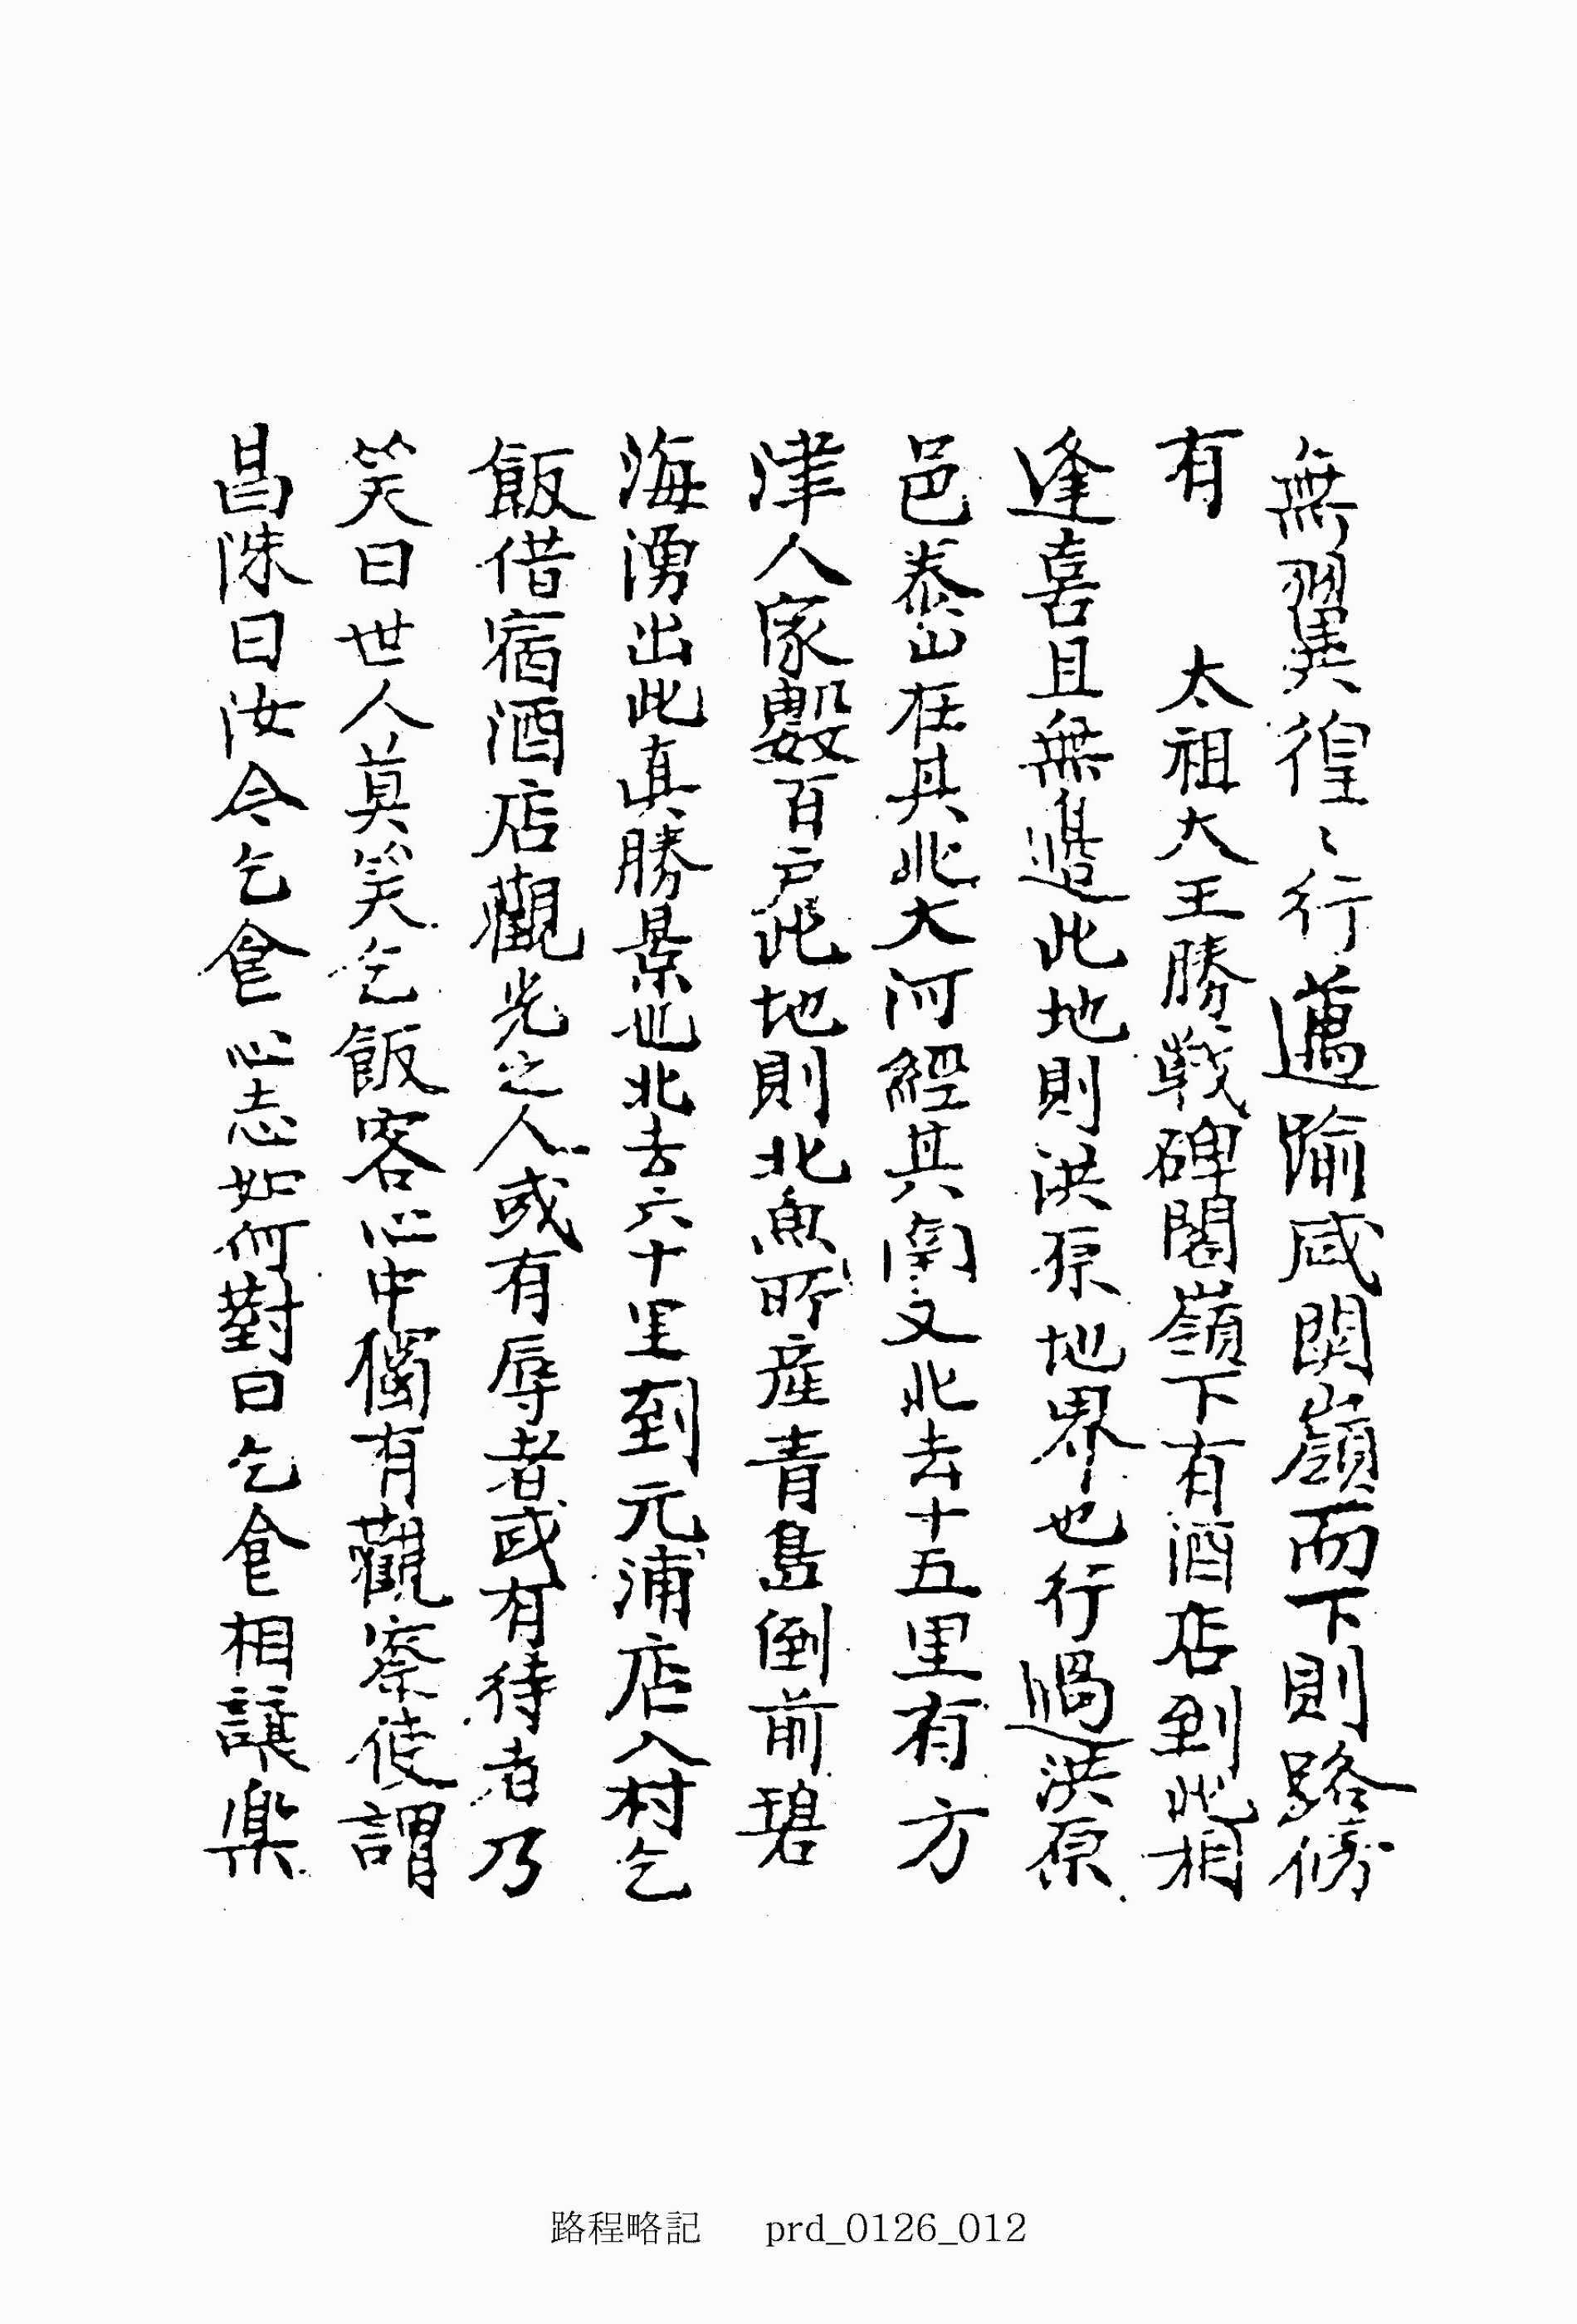 無翼徨〻行邁踰咸関嶺而下則路傍
有 太祖大王勝戰碑閣嶺下有酒店到此相
逢喜且無邊此地則洪原地界也行過洪原
邑泰山在其北大河經其南又北去十五里有方
津人家數百户此地則北魚所産青島倒前碧
海湧出此真勝景也北去六十里到元浦店入村乞
飯借宿酒店觀光之人或有辱者或有待者乃
笑曰世人莫笑乞飯客心中獨有觀察使謂
昌洙曰汝今乞食心志如何對曰乞食相讓樂
路程略記 prd_0126_012